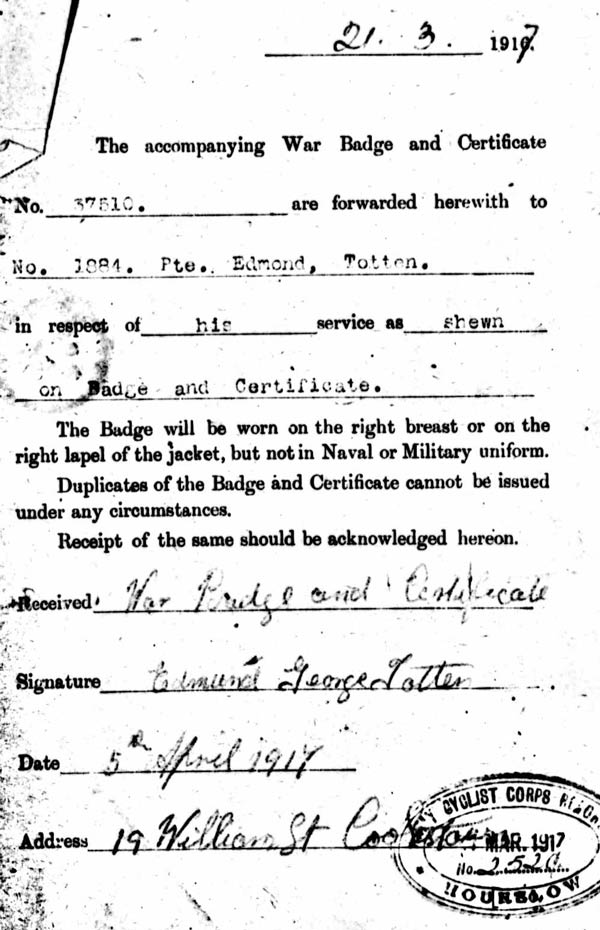 21. 3. 1917.
The accompanying War Badge and Certificate
No. 37510. are forwarded herewith to
No. 1884. Pte. Edmond, Totten.
in respect of his service as shewn
on Badge and Certificate.
The Badge will be worn on the right breast or on the
right lapel of the jacket, but not in Naval or Military uniform.
Duplicates of the Badge and Certificate cannot be issued
under any circumstances.
Receipt of the same should be acknowledged hereon.
Received War Badge and Certificate
Signature Edmund George Totten
Date 5th April 1917
Address 19 William St Cookstown
CYCLIST CORPS
MAR. 1917
No. 2526
HOUNSLOW